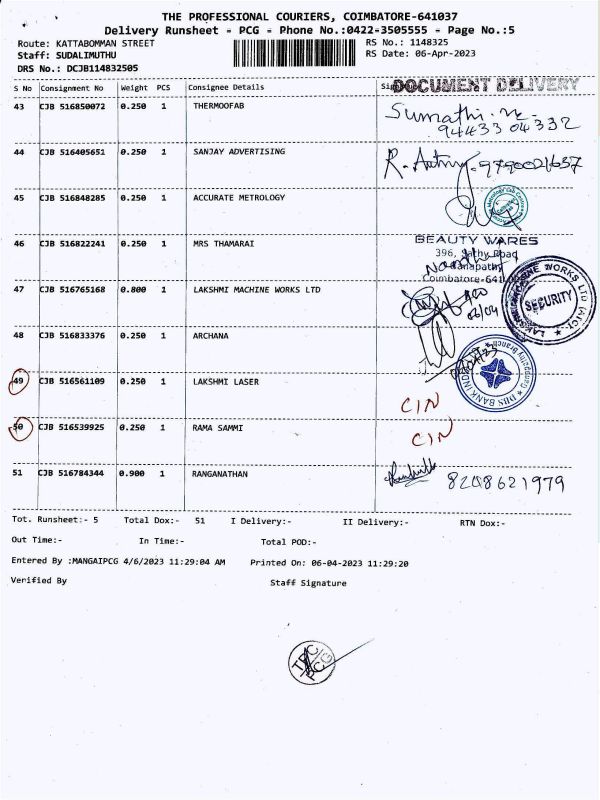 THE PROFESSIONAL COURIERS, COIMBATORE-641037
Delivery Runsheet - PCG - Phone No.:0422-3505555 - Page No.:5
Route: KATTABOMMAN STREET
RS No.: 1148325
Staff: SUDALIMUTHU
RS Date: 06-Apr-2023
DRS No.: DCJB114832505
S No Consignment No Weight PCS Consignee Details
DOCUMENT DELIVERY
43 CJB 516850072 0.250 1 THERMOOFAB
Sumathi.
94433 04332
44 CJB 516405651 0.250 1 SANJAY ADVERTISING
R. Antny 9790021637
45 CJB 516848285 0.250 1 ACCURATE METROLOGY
46 CJB 516822241 0.250 1 MRS THAMARAI
BEAUTY WARES
396, Sathy Road
Ganapathy
Coimbatore-641
47 CJB 516765168 0.800 1 LAKSHMI MACHINE WORKS LTD
SECURITY
48 CJB 516833376 0.250 1 ARCHANA
49 CJB 516561109 0.250 1 LAKSHMI LASER
CIN
50 CJB 516539925 0.250 1 RAMA SAMMI
CIN
51 CJB 516784344 0.900 1 RANGANATHAN
8208621979
Tot. Runsheet:- 5 Total Dox:- 51 I Delivery:- II Delivery:- RTN Dox:-
Out Time:- In Time:- Total POD:-
Entered By :MANGAIPCG 4/6/2023 11:29:04 AM Printed On: 06-04-2023 11:29:20
Verified By Staff Signature